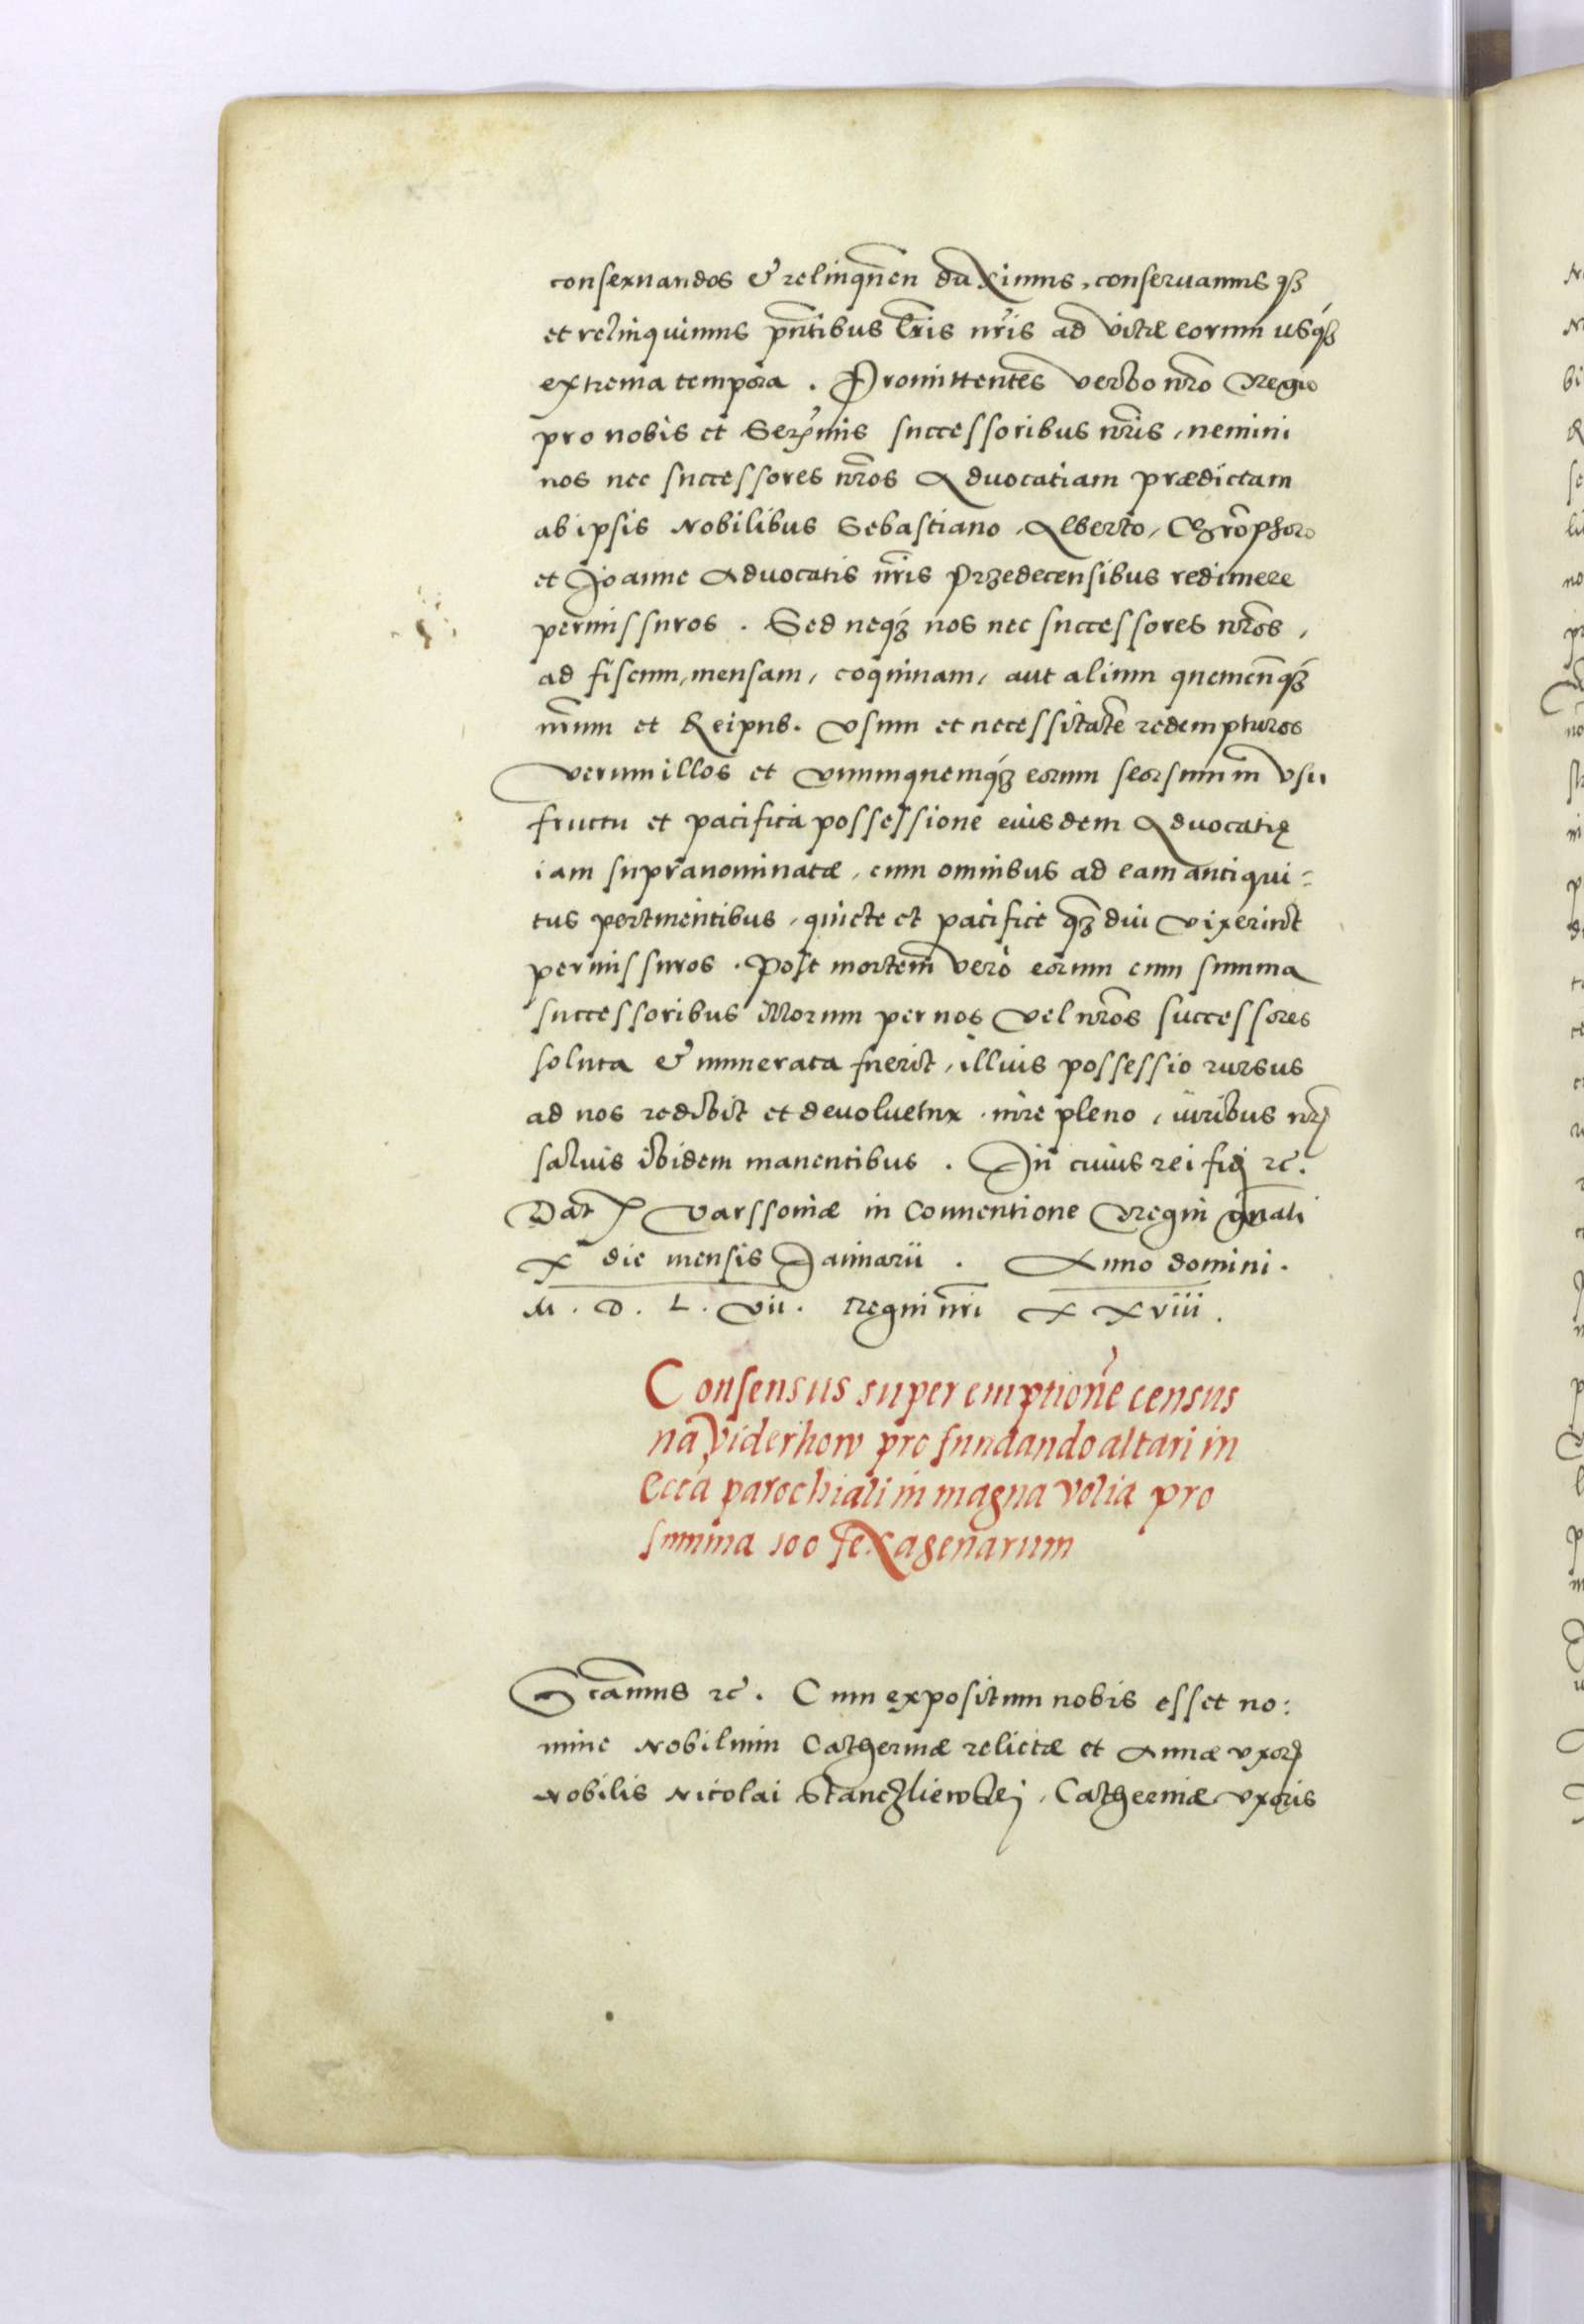 conseruandos & relinquen duximus, conseruamusqȝ
et relinquimus pn̄tibus Lr̄is nr̄is ad vitæ eorum usqȝ
extrema tempora. Promittentes verbo nr̄o Regio
pro nobis et Serꝰmis successoribus nr̄is, nemini
nos nec successores nr̄os Aduocatiam prædictam
ab ipsis Nobilibus Sebastiano, Alberto, Chrōphoro
et Joanne Aduocatis nr̄is Przedecensibus redimere
permissuros. Sed neqȝ nos nec successores nr̄os,
ad fiscum, mensam, coquinam, aut alium quemcūnqȝ
nr̄um et Reipub. vsum et necessitatē redempturos
verum illos et vnumquemqȝ eorum seorsum in vsu
fructu et pacifica possessione eiusdem Aduocatię
iam supranominatæ, cum omnibus ad eam antiqui=
tus pertinentibus, quiete et pacifice qȝ diu vixerint
permissuros. Post mortem verò eorum cum summa
successoribus illorum per nos vel nr̄os successores
soluta & numerata fuerit, illius possessio rursus
ad nos redibit et deuoluetur iure pleno, iuribus nrꝭ
saluis ibidem manentibus. In cuius rei fiđ ꝛc̄.
Dat Varssoniæ in Conuentione Regni gn̄ali
X die mensis Januarii. Anno domini.
M. D. L. vii. Regni nr̄i XXviii.
Consensus super emptionē census
na Viderhow pro fundando altari in
Eccā parochiali in magna Volia pro
summa 100 sexagenarum
Sçamus ꝛc̄. Cum expositum nobis esset no:
mine Nobilium Catherinæ relictæ et Annæ vxorꝭ
Nobilis Nicolai Stanczliewskj, Catherinæ vxoris